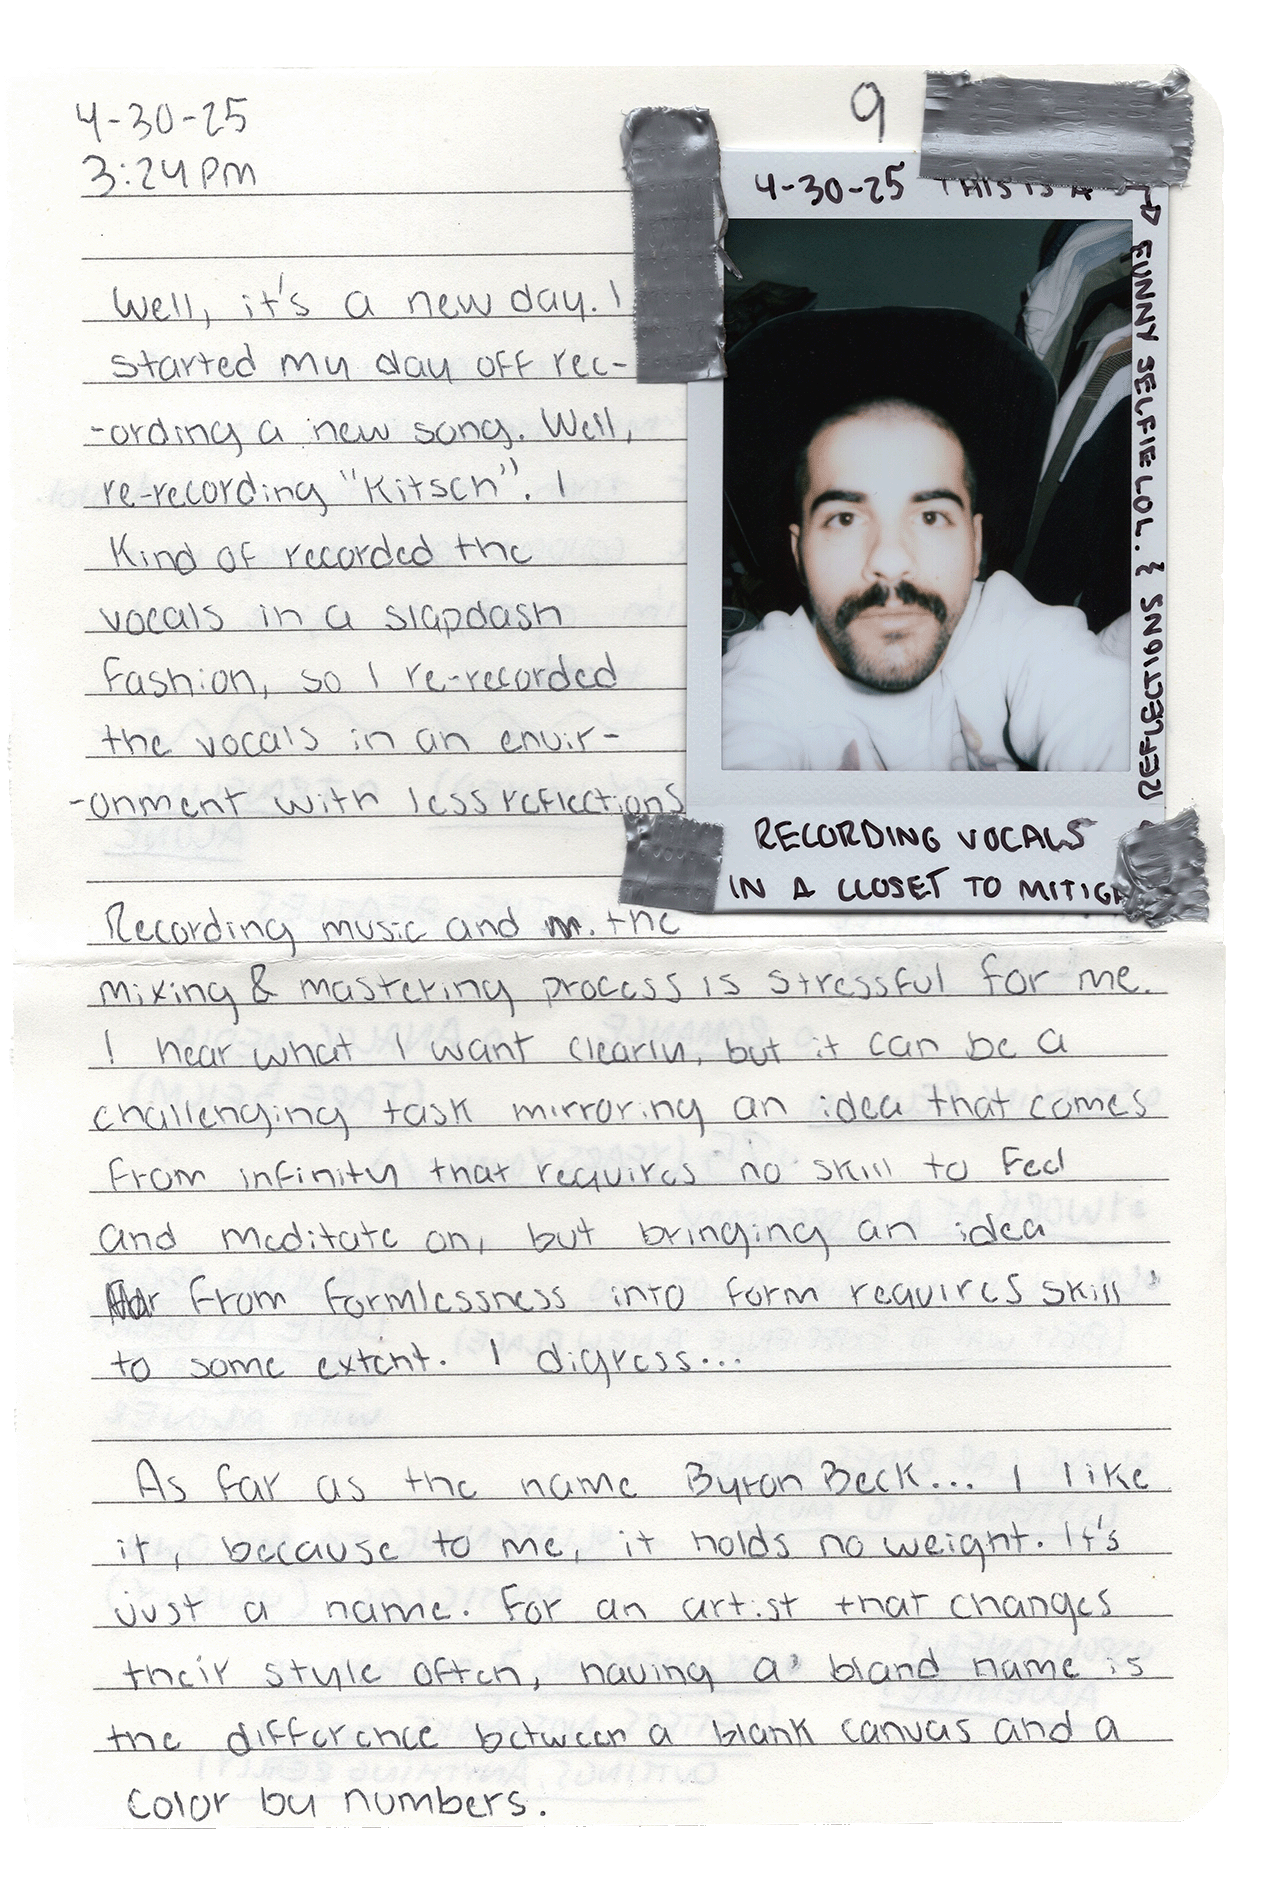 4-30-25
3:24PM
9
Well, it's a new day. I
started my day off rec-
-ording a new song. Well,
re-recording "Kitsch". I
Kind of recorded the
vocals in a slapdash
fashion, so I re-recorded
the vocals in an envir-
-onment with less reflections
Recording music and m. the
mixing & mastering process is stressful for me.
I hear what I want clearly, but it can be a
challenging task mirroring an idea that comes
from infinity that requires no skill to feel
and meditate on, but bringing an idea
from formlessness into form requires skill
to some extent. I digress...
As far as the name Byron Beck... I like
it, because to me, it holds no weight. It's
just a name. For an artist that changes
their style often, having a bland name is
the difference between a blank canvas and a
color by numbers.
4-30-25 THIS IS A
FUNNY SELFIE LOL. & REFLECTIONS
RECORDING VOCALS
IN A CLOSET TO MITIGA